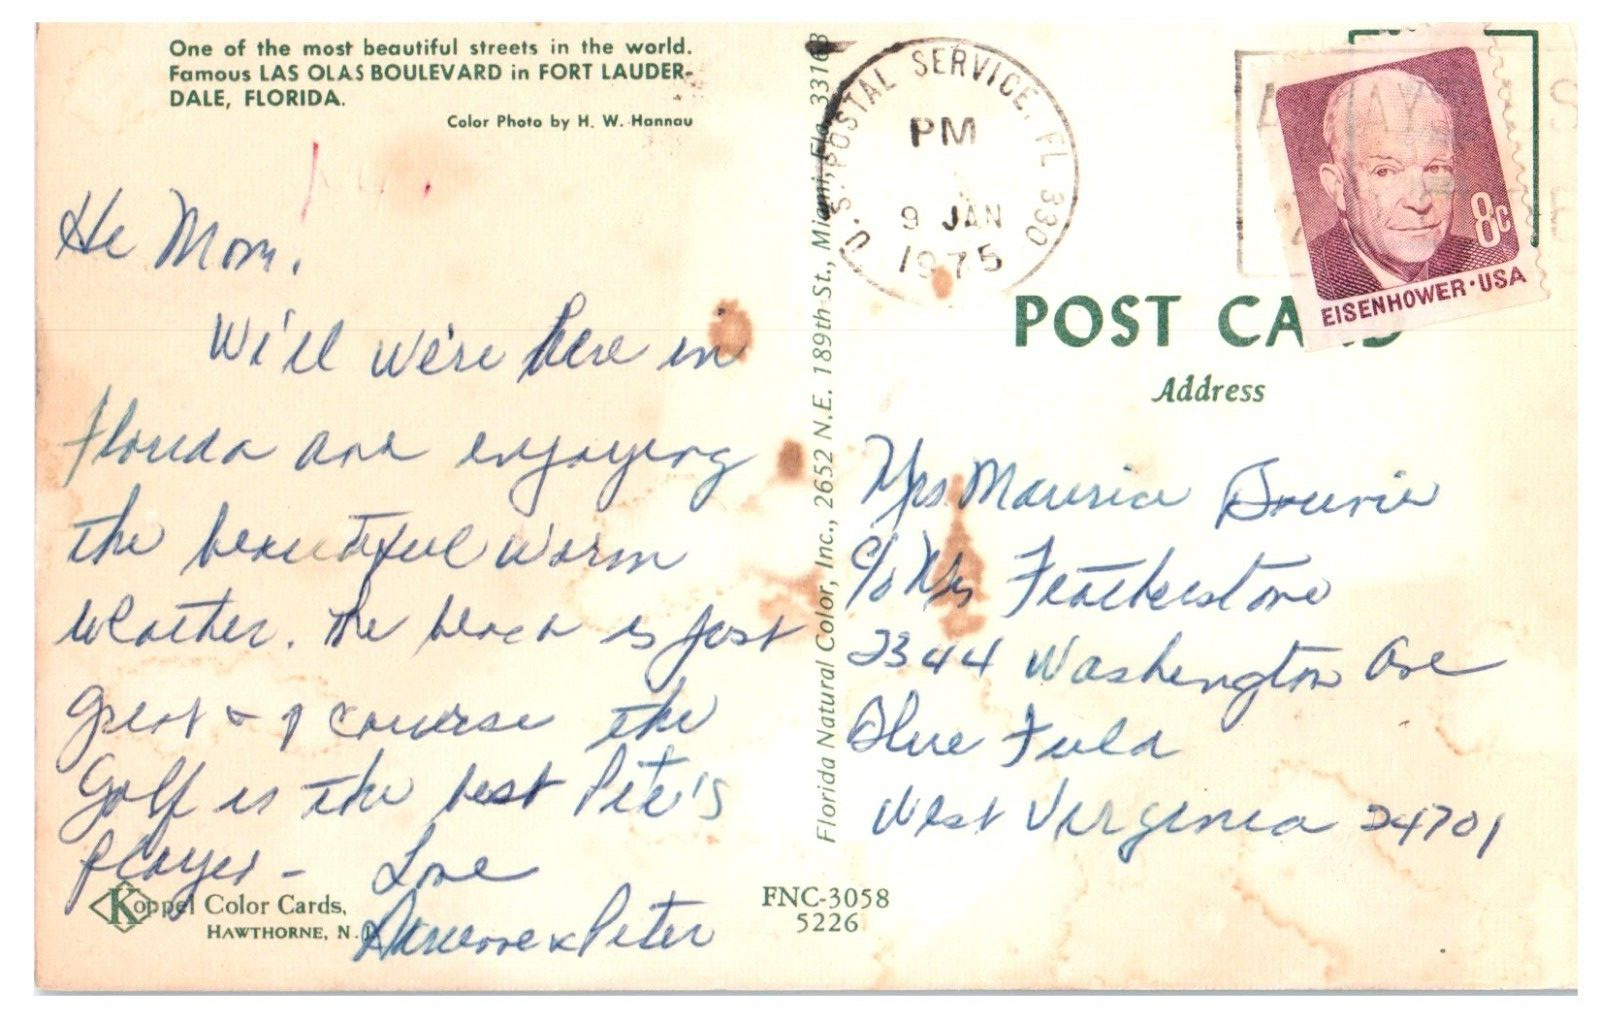 One of the most beautiful streets in the world.
Famous LAS OLAS BOULEVARD in FORT LAUDER-
DALE, FLORIDA.
Color Photo by H. W. Hannau
He Mom!
We'll we're here in
Florida and enjoying
the beautiful warm
weather. The beach is just
great & of course the
Golf is the best Pete's
played - Love
& Peter
Koppel Color Cards,
HAWTHORNE, N. J.
FNC-3058
5226
Florida Natural Color, Inc., 2652 N.E. 189th St., Miami, Fla. 33163
U.S. POSTAL SERVICE, FL 330
PM
9 JAN
1975
8c
EISENHOWER · USA
POST CARD
Address
Mrs Maurice
c/o Mrs Featherstone
2344 Washington Ave
Blue Field
West Virginia 24701